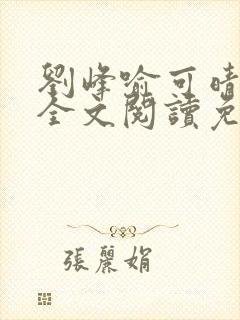 劉峰喻可晴
全文閱讀免
張麗娟